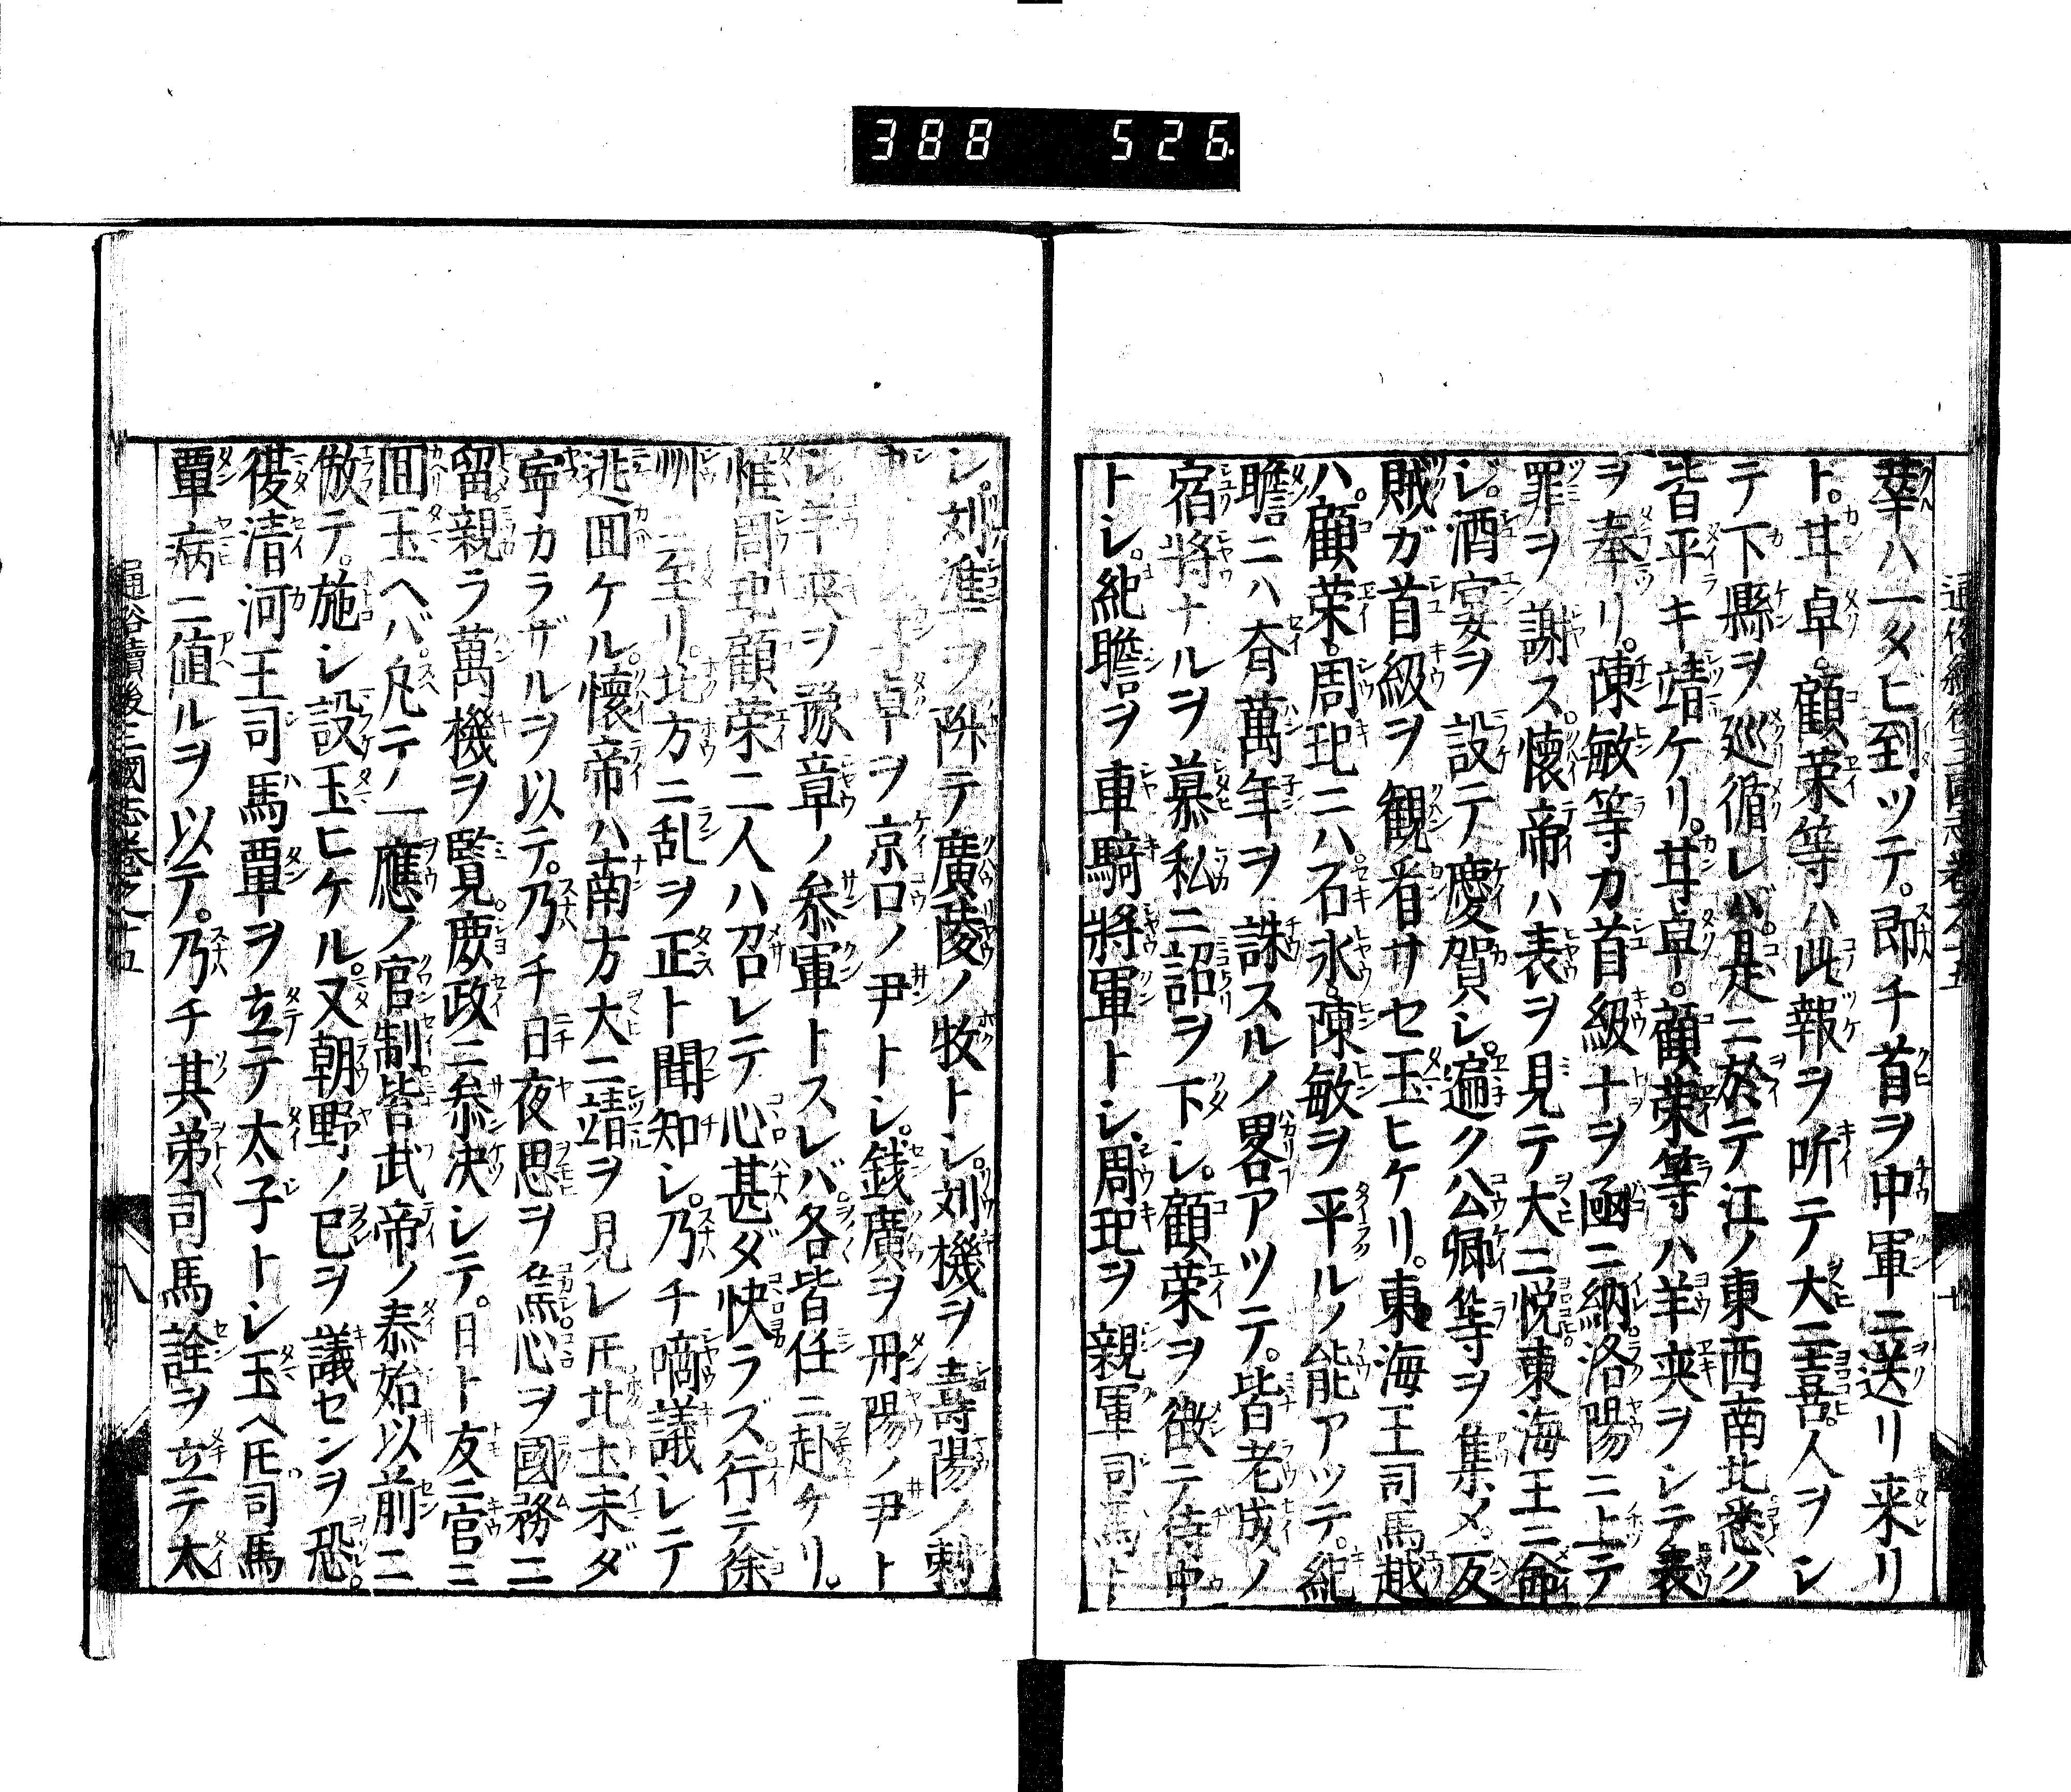 388 526
通俗續後三國志卷之十五
十
華ハ一タヒ到ツテ。即チ首ヲ中軍ニ送リ来リ
ト。甘卓。顧栄等ハ此報ヲ听テ大ニ喜。人ヲシ
テ下縣ヲ巡循レバ是ニ於テ江ノ東西南北悉ク
皆平キ靖ケリ。甘卓。顧栄等ハ羊夾ヲシテ表
ヲ奉リ。陳敏等カ首級ナヲ函ニ納洛陽ニ上テ
罪ヲ謝ス懐帝ハ表ヲ見テ大ニ悦東海王ニ命
ジ。酒宴ヲ設テ慶賀シ。遍ク公卿等ヲ集メ。反
賊ガ首級ヲ観看サセ玉ヒケリ。東海王司馬越
ハ。顧栄。周玘ニハ石氷。陳敏ヲ平ルノ能アツテ。紀
瞻ニハ斉萬年ヲ誅スルノ畧アツテ。皆老成ノ
宿將ナルヲ慕私ニ詔ヲ下シ。顧栄ヲ徴ニテ侍中
トシ。紀瞻ヲ車騎將軍トシ、周玘ヲ親軍司馬ト
シ。刘準ヲ陞テ廣陵ノ牧トシ。刘機ヲ壽陽ノ刺
卓ヲ京口ノ尹トシ。銭廣ヲ丹陽ノ尹ト
シ羊夾ヲ豫章ノ参軍トスレバ各皆任ニ赴ケリ。
惟周玘顧栄二人ハ召レテ心甚ダ快ラズ行テ徐
州ニ至リ。北方ニ乱ヲ正ト聞知シ。乃チ啇議シテ
逃回ケル懐帝ハ南方大ニ靖ヲ見レ𪜈北土未ダ
寧カラザルヲ以テ。乃チ日夜思ヲ焦心ヲ國務ニ
留親ラ萬機ヲ覧庶政ニ参决シテ。日ト友ニ官ニ
回玉ヘバ。凡テノ一應ノ官制皆武帝ノ泰始以前ニ
倣テ。施シ設玉ヒケル。又朝野ノ已ヲ議センヲ恐。
復清河王司馬覃ヲ立テ太子トシ玉ヘ𪜈司馬
覃病ニ値ルヲ以テ。乃チ其弟司馬詮ヲ立テ太
通俗續後三國志卷之十五
八